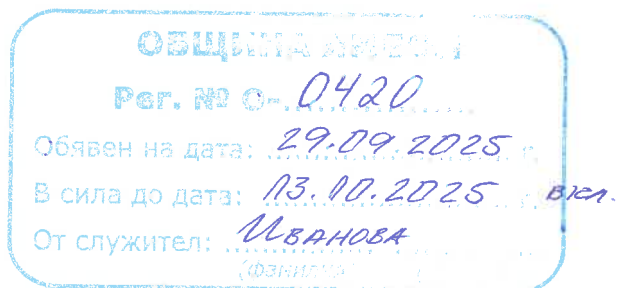 ОБЩИНА
Рег. № О-0420
Обявен на дата: 29.09.2025 г.
В сила до дата: 13.10.2025 г. вкл.
От служител: Иванова